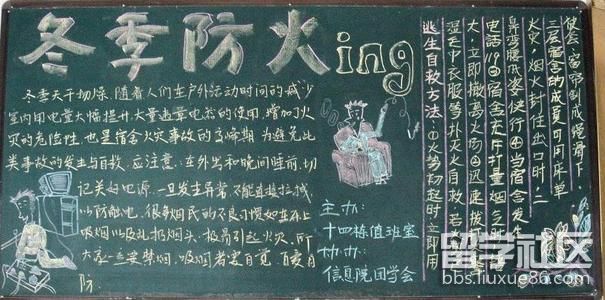 冬季防火ing
冬季天干物燥,随着人们在户外活动时间的减少
室内用电量大幅提升,大量违章电器的使用,增加了火
灾的危险性,也是宿舍火灾事故的高峰期.为避免此
类事故的发生与自救,应注意:在外出和晚间睡前,切
记关好电源,一旦发生异常,不能直接拉拽
以防触电.很多烟民的不良习惯如在床上
吸烟以及乱扔烟头,极易引起火灾.所
大家一定要禁烟,吸烟者要自觉,自
防.
主办:
十四栋值班室
协办:
信息院团学会
逃生自救方法:①火势初起时立即用
湿毛巾衣服等扑灭火自救 若
太大,立即撤离火场②迅速拨打
电话119③宿舍充斥大量烟气时
鼻弯腰低姿快行④当宿舍发生
火灾,烟火封住出口时,二
三层宿舍的成员可用床单
窗帘制成绳滑下.
留学社区
bbs.liuxue86.com